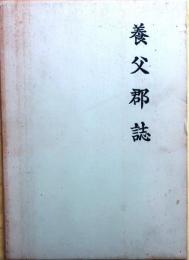 養父郡誌